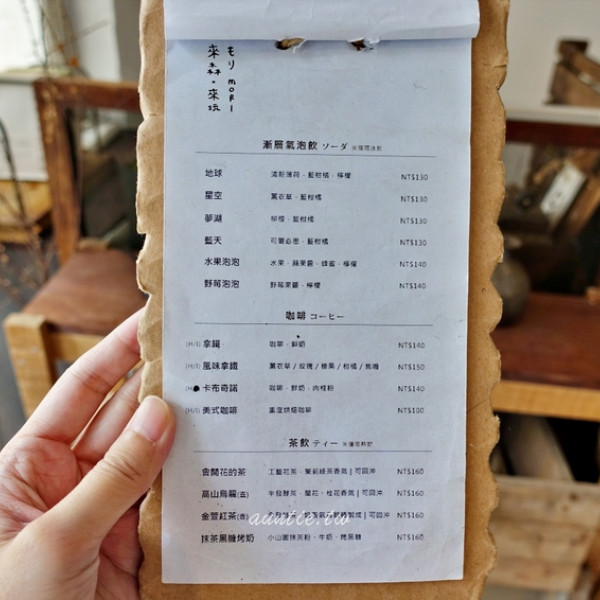 もり mori
來森。來坑
漸層氣泡飲 ソーダ
地球 清新薄荷、藍柑橘、檸檬 NT$130
星空 薰衣草、藍柑橘 NT$130
夢湖 柳橙、藍柑橘 NT$130
藍天 可爾必思、藍柑橘 NT$130
水果泡泡 水果、蘋果醬、蜂蜜、檸檬 NT$140
野莓泡泡 野莓果醬、檸檬 NT$140
咖啡 コーヒー
(H/I) 拿鐵 咖啡、鮮奶 NT$140
(H/I) 風味拿鐵 薰衣草/玫瑰/榛果/柑橘/焦糖 NT$150
(H 卡布奇諾 咖啡、鮮奶、肉桂粉 NT$140
(H/I) 美式咖啡 重度烘焙咖啡 NT$100
茶飲 ティー
會開花的茶 工藝花茶、茉莉綠茶香氣 | 可回沖 NT$160
高山烏龍(壺) 半發酵茶、蘭花、桂花香氣 | 可回沖 NT$160
金萱紅茶(壺) 製成 | 可回沖 NT$160
抹茶黑糖烤奶 小山園抹茶粉、牛奶、烤黑糖 NT$160
auntie.tw